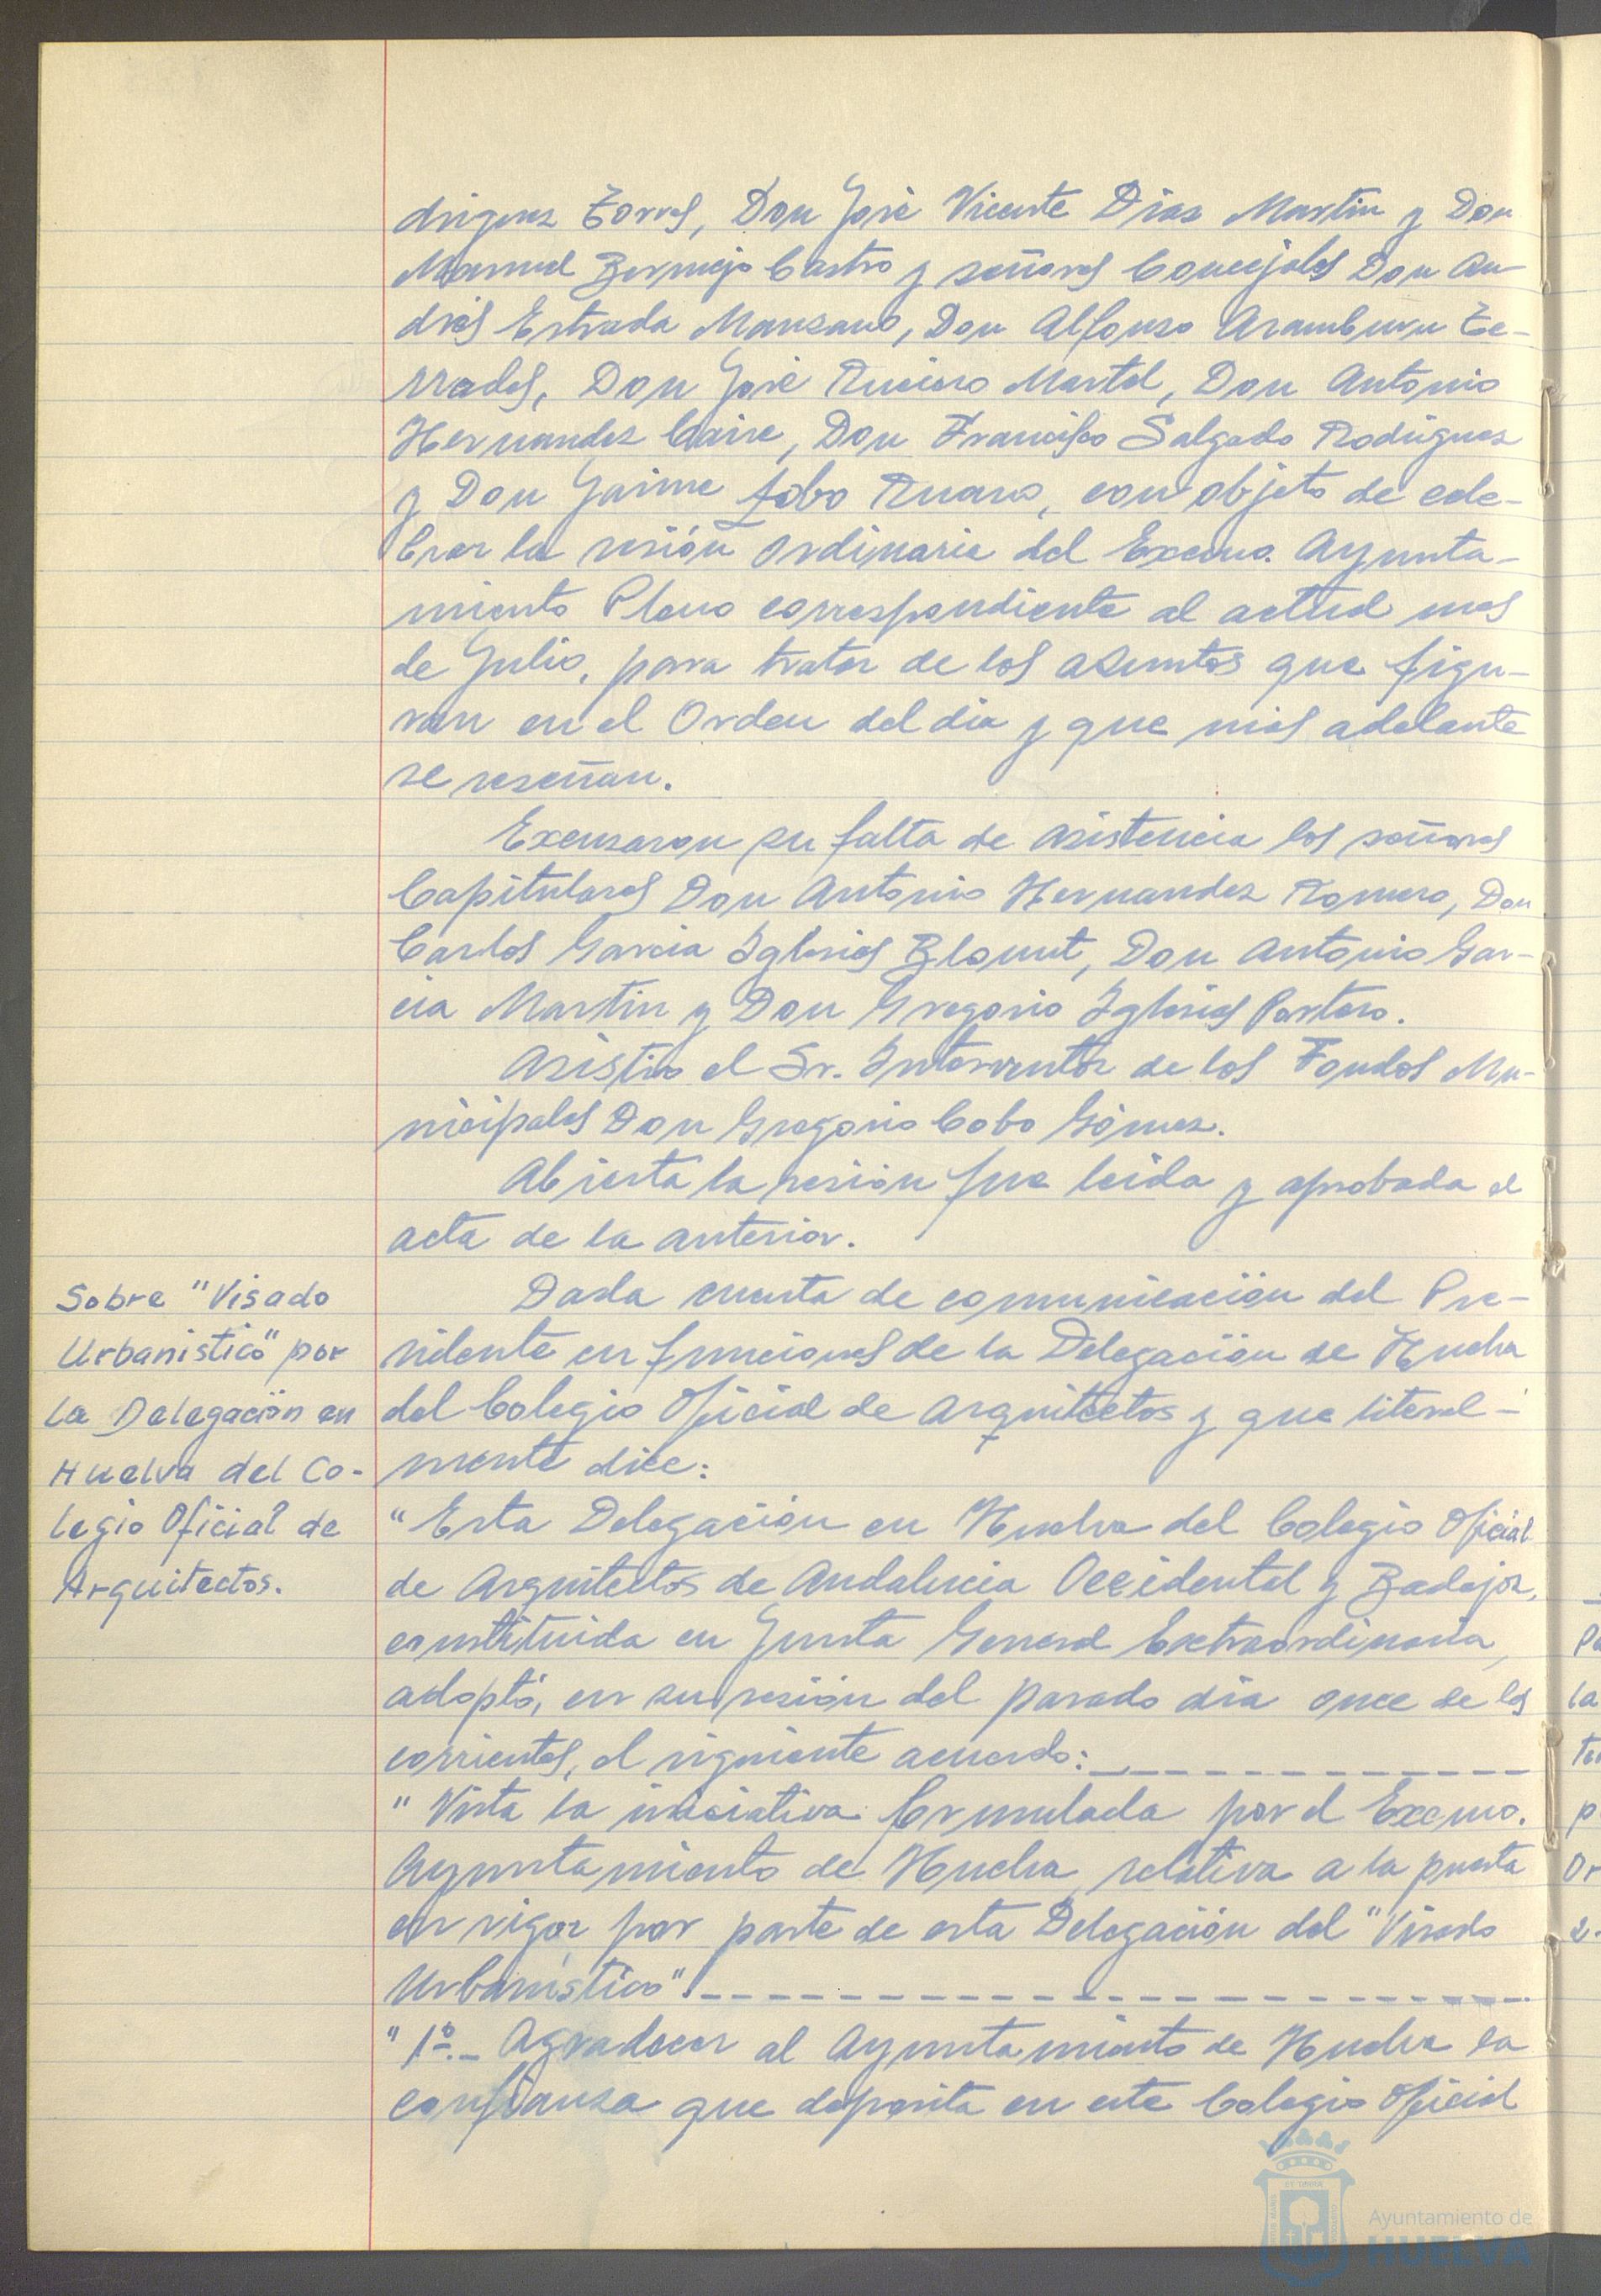 driguez Torres, Don José Vicente Diaz Martin y Don
Manuel Bermejo Castro y señores Concejales Don An-
drés Estrada Manzano, Don Alfonso Aramburu Te-
rrades, Don José Ruciero Martel, Don Antonio
Hernandez Caire, Don Francisco Salgado Rodriguez
y Don Jaime Lobo Ruano, con objeto de cele-
brar la sesión Ordinaria del Excmo. Ayunta-
miento Pleno correspondiente al actual mes
de Julio, para tratar de los asuntos que figu-
ran en el Orden del dia y que más adelante
se reseñan.
Excusaron su falta de asistencia los señores
Capitulares Don Antonio Hernandez Romero, Don
Carlos Garcia Iglesias Blount, Don Antonio Gar-
cia Martin y Don Gregorio Iglesias Portero.
Asistio el Sr. Interventor de los Fondos Mu-
nicipales Don Gregorio Cobo Gómez.
Abierta la sesión fue leida y aprobada el
acta de la anterior.
Sobre "Visado
Urbanistico" por
la Delegación en
Huelva del Co-
legio Oficial de
Arquitectos.
Dada cuenta de comunicación del Pre-
sidente en funciones de la Delegación de Huelva
del Colegio Oficial de Arquitectos y que literal-
mente dice:
"Esta Delegación en Huelva del Colegio Oficial
de Arquitectos de Andalucia Occidental y Badajoz,
constituida en Junta General Extraordinaria,
adoptó, en su sesión del pasado dia once de los
corrientes, el siguiente acuerdo:
"Vista la iniciativa formulada por el Excmo.
Ayuntamiento de Huelva relativa a la puesta
en vigor por parte de esta Delegación del "Visado
Urbanístico".
"1º.- Agradecer al Ayuntamiento de Huelva la
confianza que deposita en este Colegio Oficial
Ayuntamiento de
HUELVA